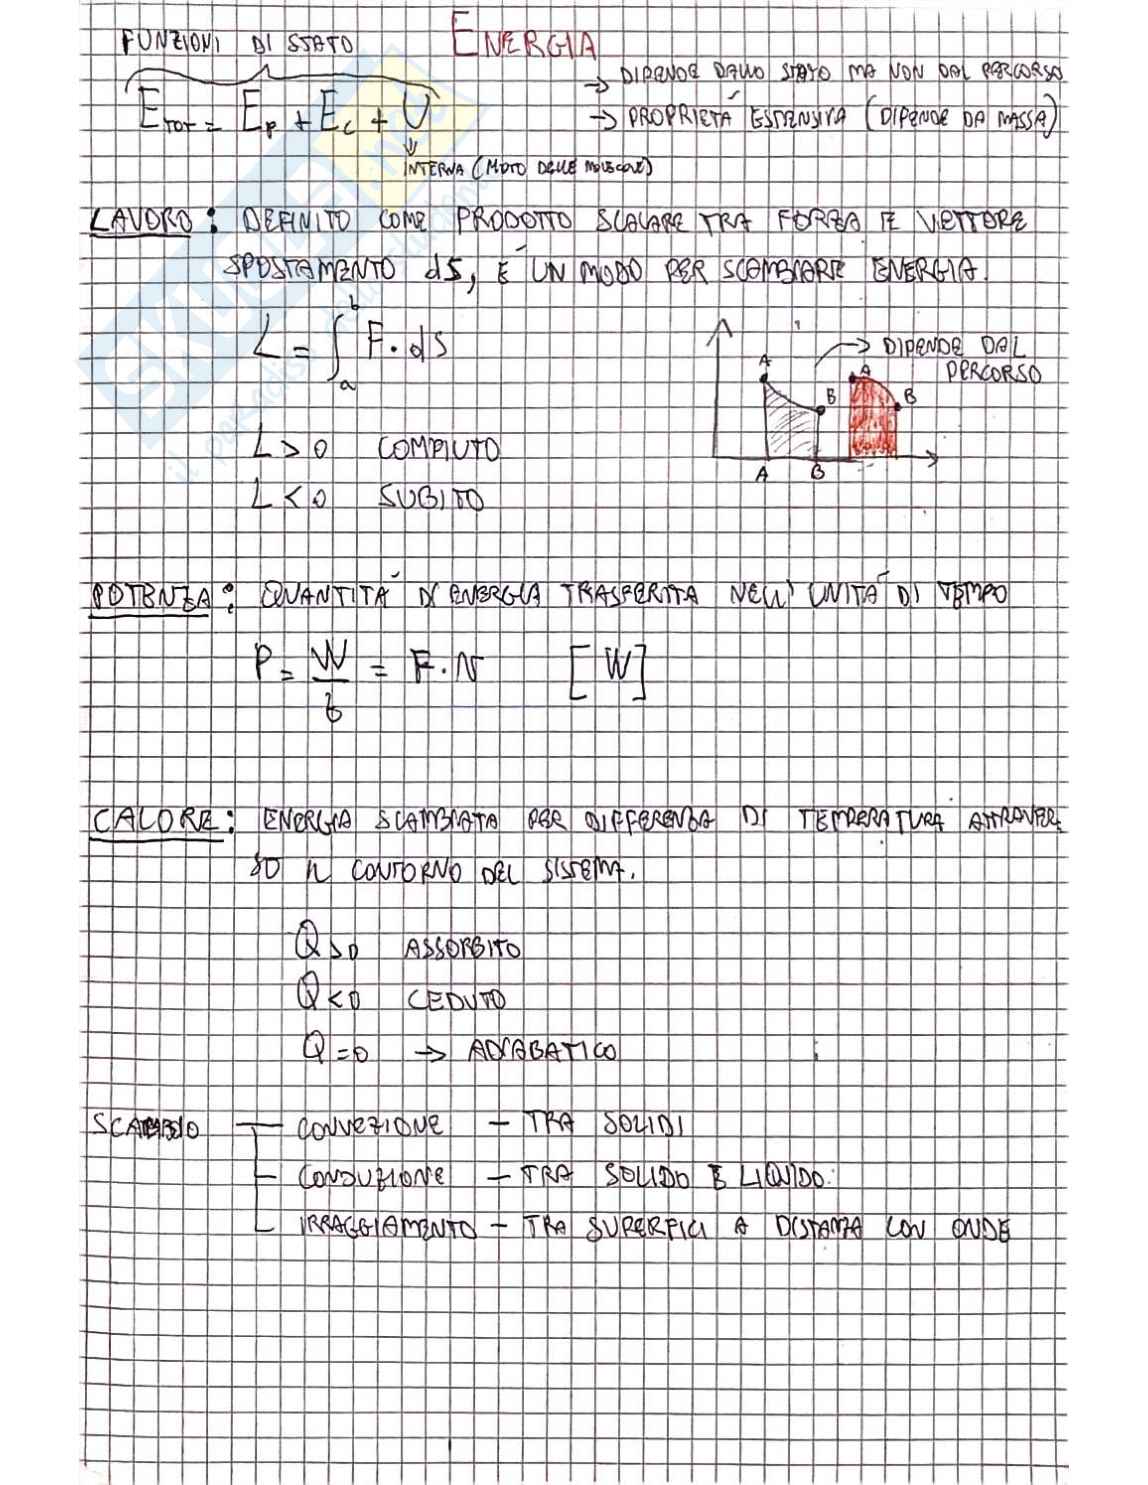 FUNZIONI DI STATO
ENERGIA
→ DIPENDE DALLO STATO MA NON DAL PERCORSO
E TOT = Ep + Ec + U
→ PROPRIETÀ ESTENSIVA (DIPENDE DA MASSA)
⇓
INTERNA (MOTO DELLE MOLECOLE)
LAVORO: DEFINITO COME PRODOTTO SCALARE TRA FORZA E VETTORE
SPOSTAMENTO dS, È UN MODO PER SCAMBIARE ENERGIA.
L = ∫ₐᵇ F · dS
→ DIPENDE DAL
PERCORSO
A B A B
A B
L > 0 COMPIUTO
L < 0 SUBITO
POTENZA: QUANTITÀ DI ENERGIA TRASFERITA NELL'UNITÀ DI TEMPO
P = W/t = F · v [W]
CALORE: ENERGIA SCAMBIATA PER DIFFERENZA DI TEMPERATURA ATTRAVER
SO IL CONTORNO DEL SISTEMA.
Q > 0 ASSORBITO
Q < 0 CEDUTO
Q = 0 → ADIABATICO
SCAMBIO — CONVEZIONE – TRA SOLIDI
CONDUZIONE – TRA SOLIDO E LIQUIDO.
IRRAGGIAMENTO – TRA SUPERFICI A DISTANZA CON ONDE
SKUOLA.net
il paradiso dello studente